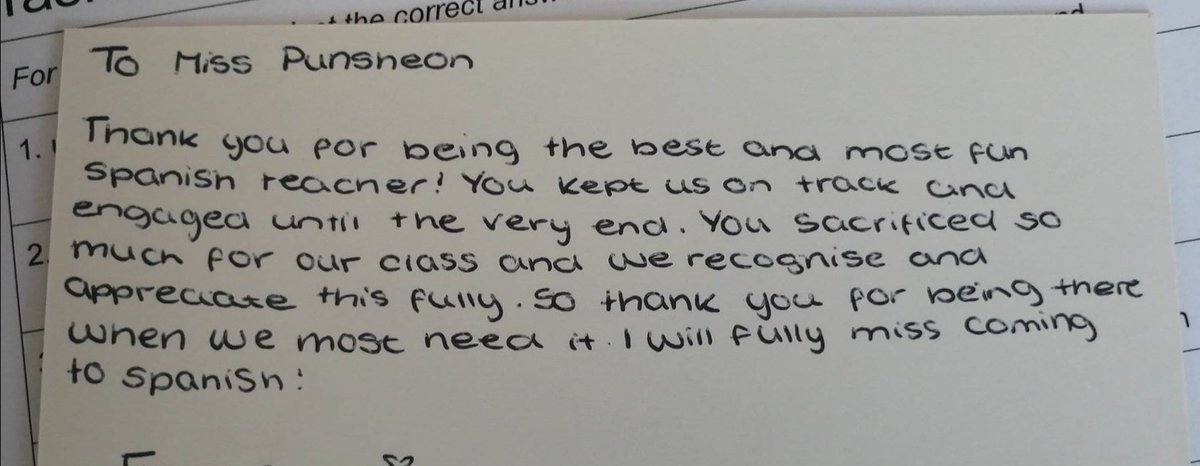 the correct ans
For
1.
2.
To Miss Punsheon
Thank you for being the best and most fun
Spanish teacher! You kept us on track and
engaged until the very end. You sacrificed so
much for our class and we recognise and
appreciate this fully. So thank you for being there
when we most need it. I will fully miss coming
to Spanish!